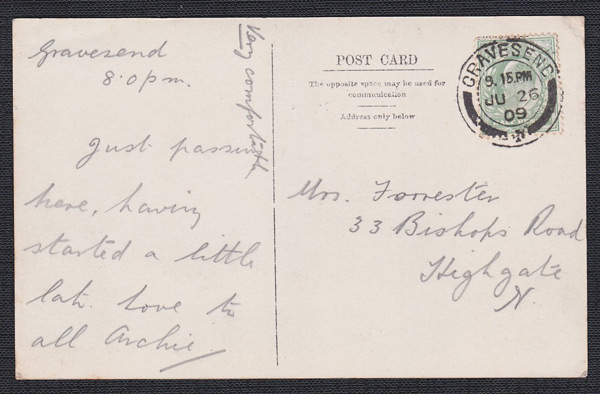 Gravesend
8.0pm.
Very comfortable
Just passing
here, having
started a little
late. Love to
all Archie.
POST CARD
The opposite space may be used for
communication
Address only below
GRAVESEND
9.15PM
JU 26
09
Mrs. Forrester
33 Bishops Road
Highgate
N.